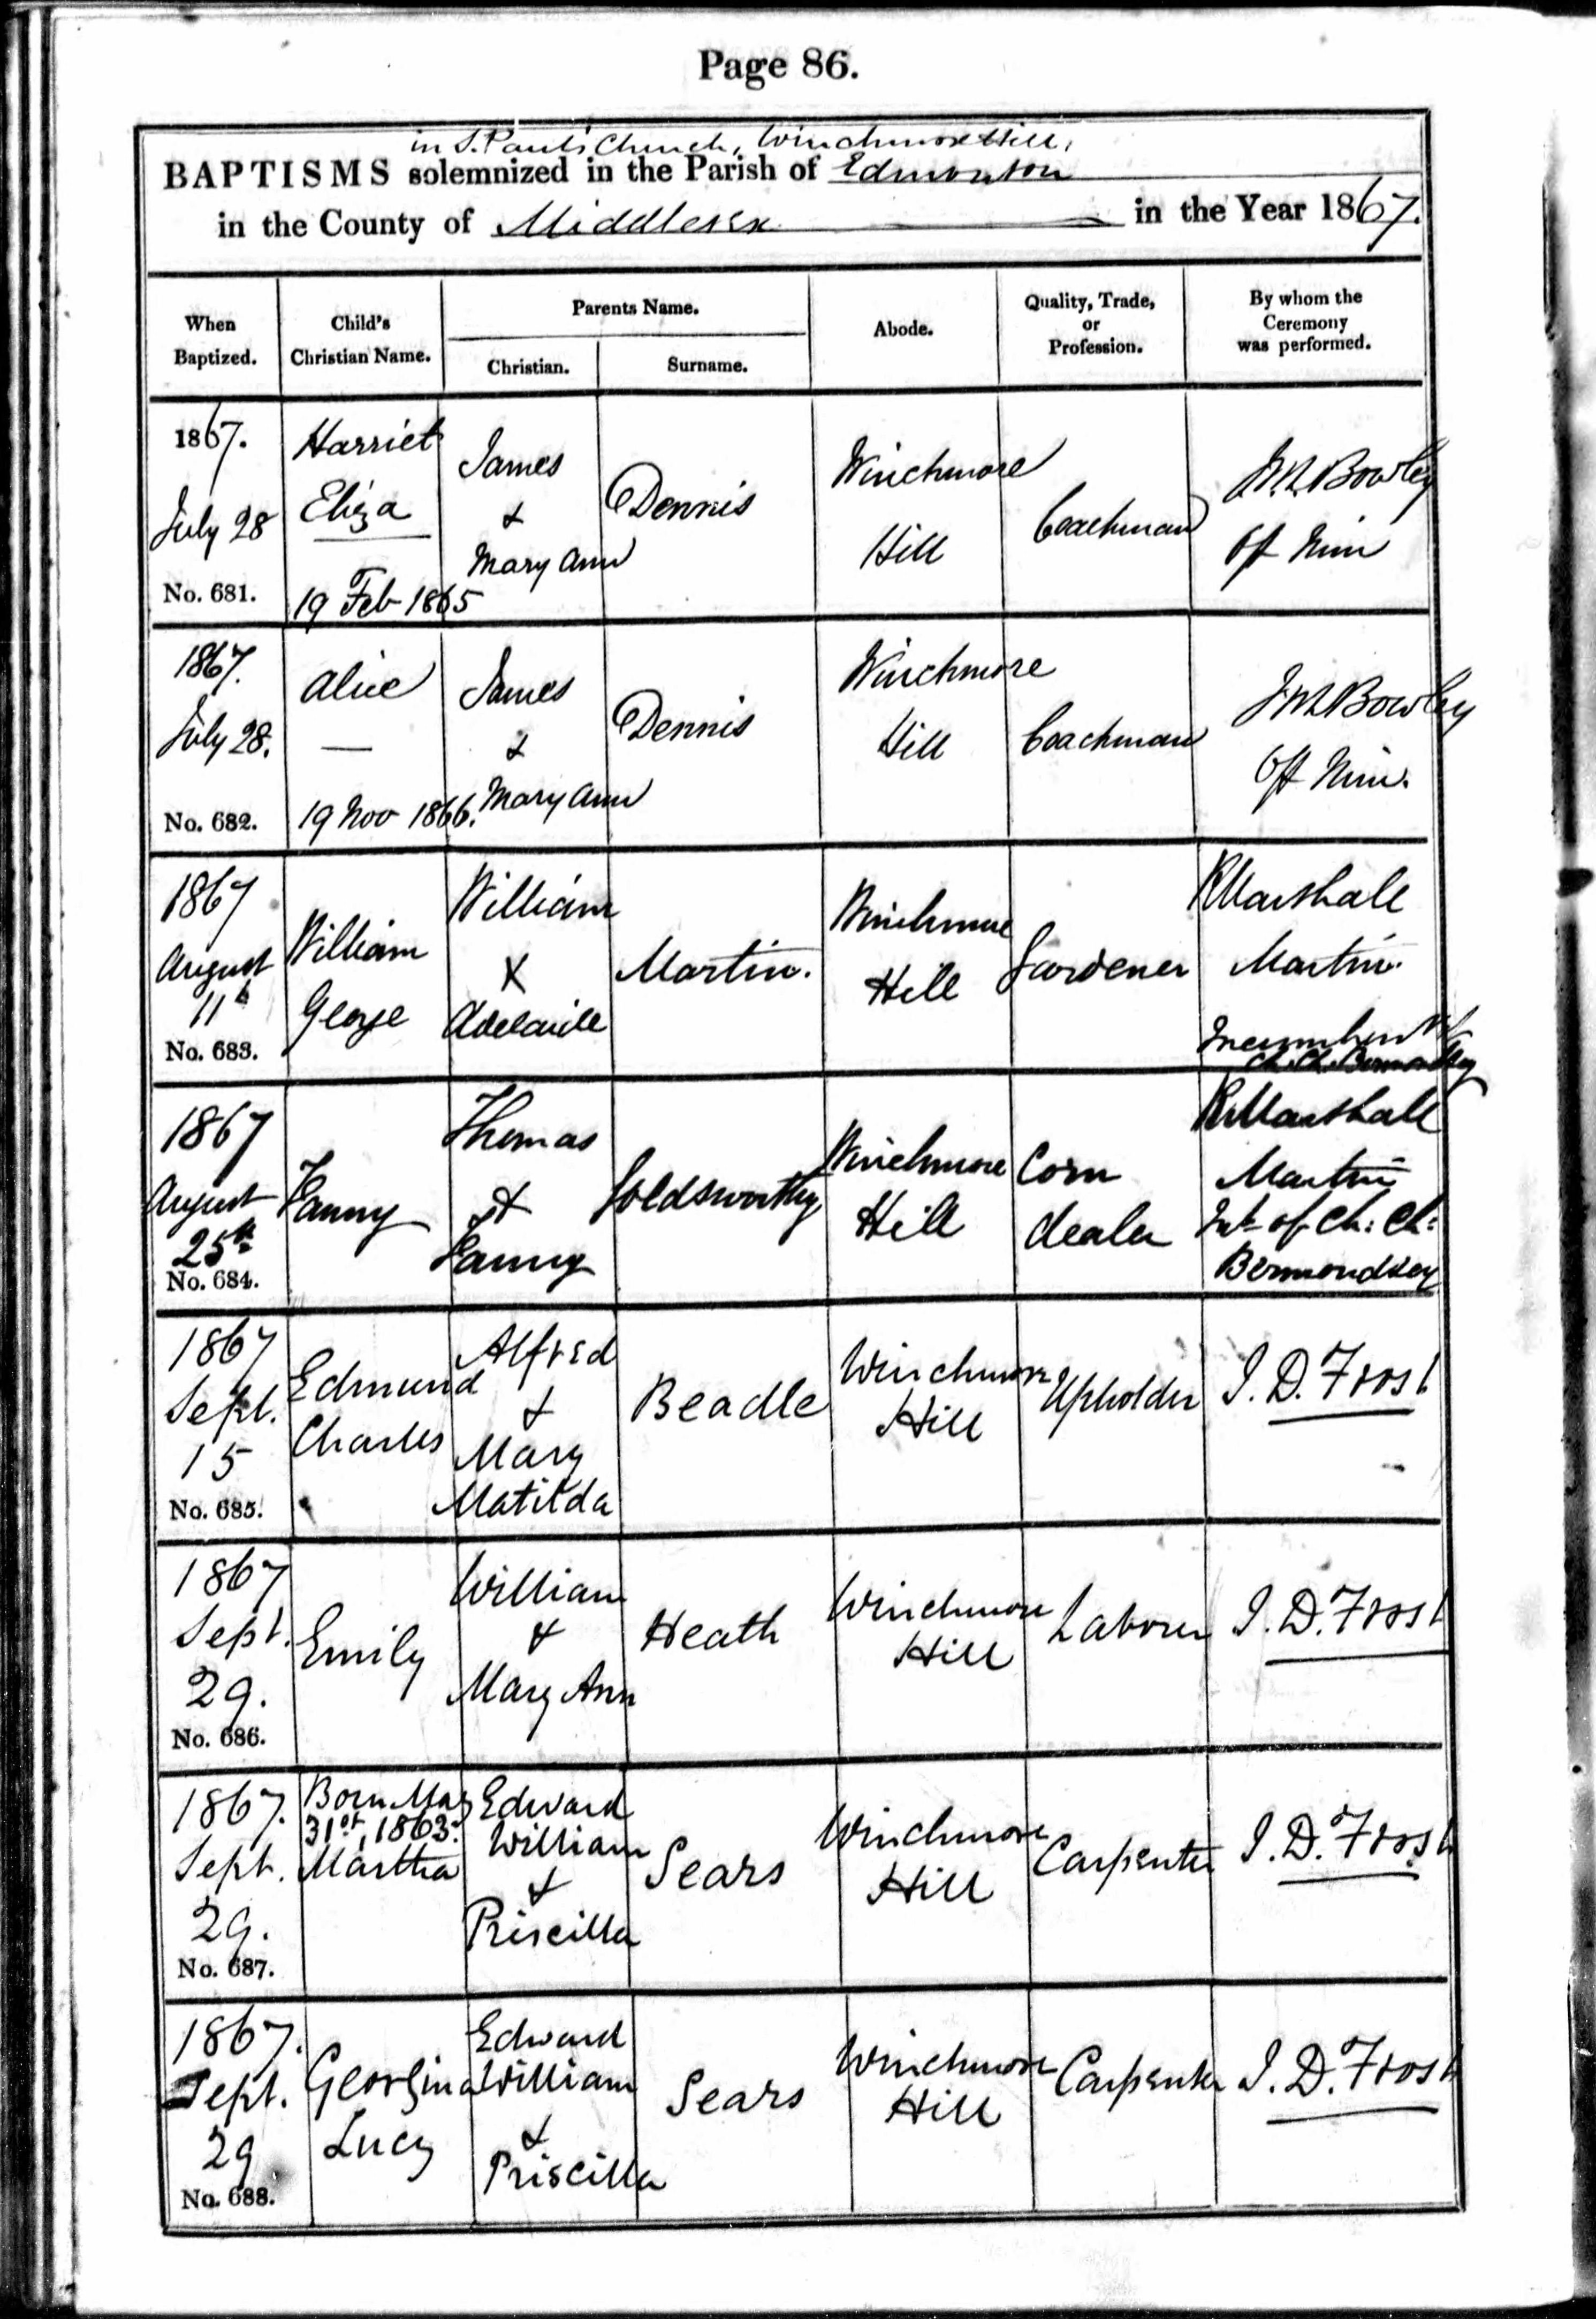 Page 86.
in S. Paul's Church, Winchmore Hill,
BAPTISMS solemnized in the Parish of Edmonton
in the County of Middlesex in the Year 1867.
When Baptized.
Child's Christian Name.
Parents Name.
Christian.
Surname.
Abode.
Quality, Trade, or Profession.
By whom the Ceremony was performed.
1867.
July 28
No. 681.
Harriet
Eliza
19 Feb 1865
James
&
Mary Ann
Dennis
Winchmore
Hill
Coachman
Bowley
Off Min
1867.
July 28.
No. 682.
Alice
—
19 Nov 1866.
James
&
Mary Ann
Dennis
Winchmore
Hill
Coachman
Bowley
Off Min.
1867
August
11th
No. 683.
William
George
William
&
Adelaide
Martin.
Winchmore
Hill
Gardener
R Marshall
Martin.
Incumbent of
Ch. Ch. Bermondsey
1867
August
25th
No. 684.
Fanny
Thomas
&
Fanny
Goldsworthy
Winchmore
Hill
Corn
dealer
R Marshall
Martin
Int of Ch: Ch:
Bermondsey
1867
Sept.
15
No. 685.
Edmund
Charles
Alfred
&
Mary
Matilda
Beadle
Winchmore
Hill
Upholder
J. D. Frost
1867
Sept.
29.
No. 686.
Emily
William
&
Mary Ann
Heath
Winchmore
Hill
Laborer
J. D. Frost
1867.
Sept.
29.
No. 687.
Born May
31st, 1863.
Martha
Edward
William
&
Priscilla
Sears
Winchmore
Hill
Carpenter
J. D. Frost
1867.
Sept.
29
No. 688.
Georgina
Lucy
Edward
William
&
Priscilla
Sears
Winchmore
Hill
Carpenter
J. D. Frost